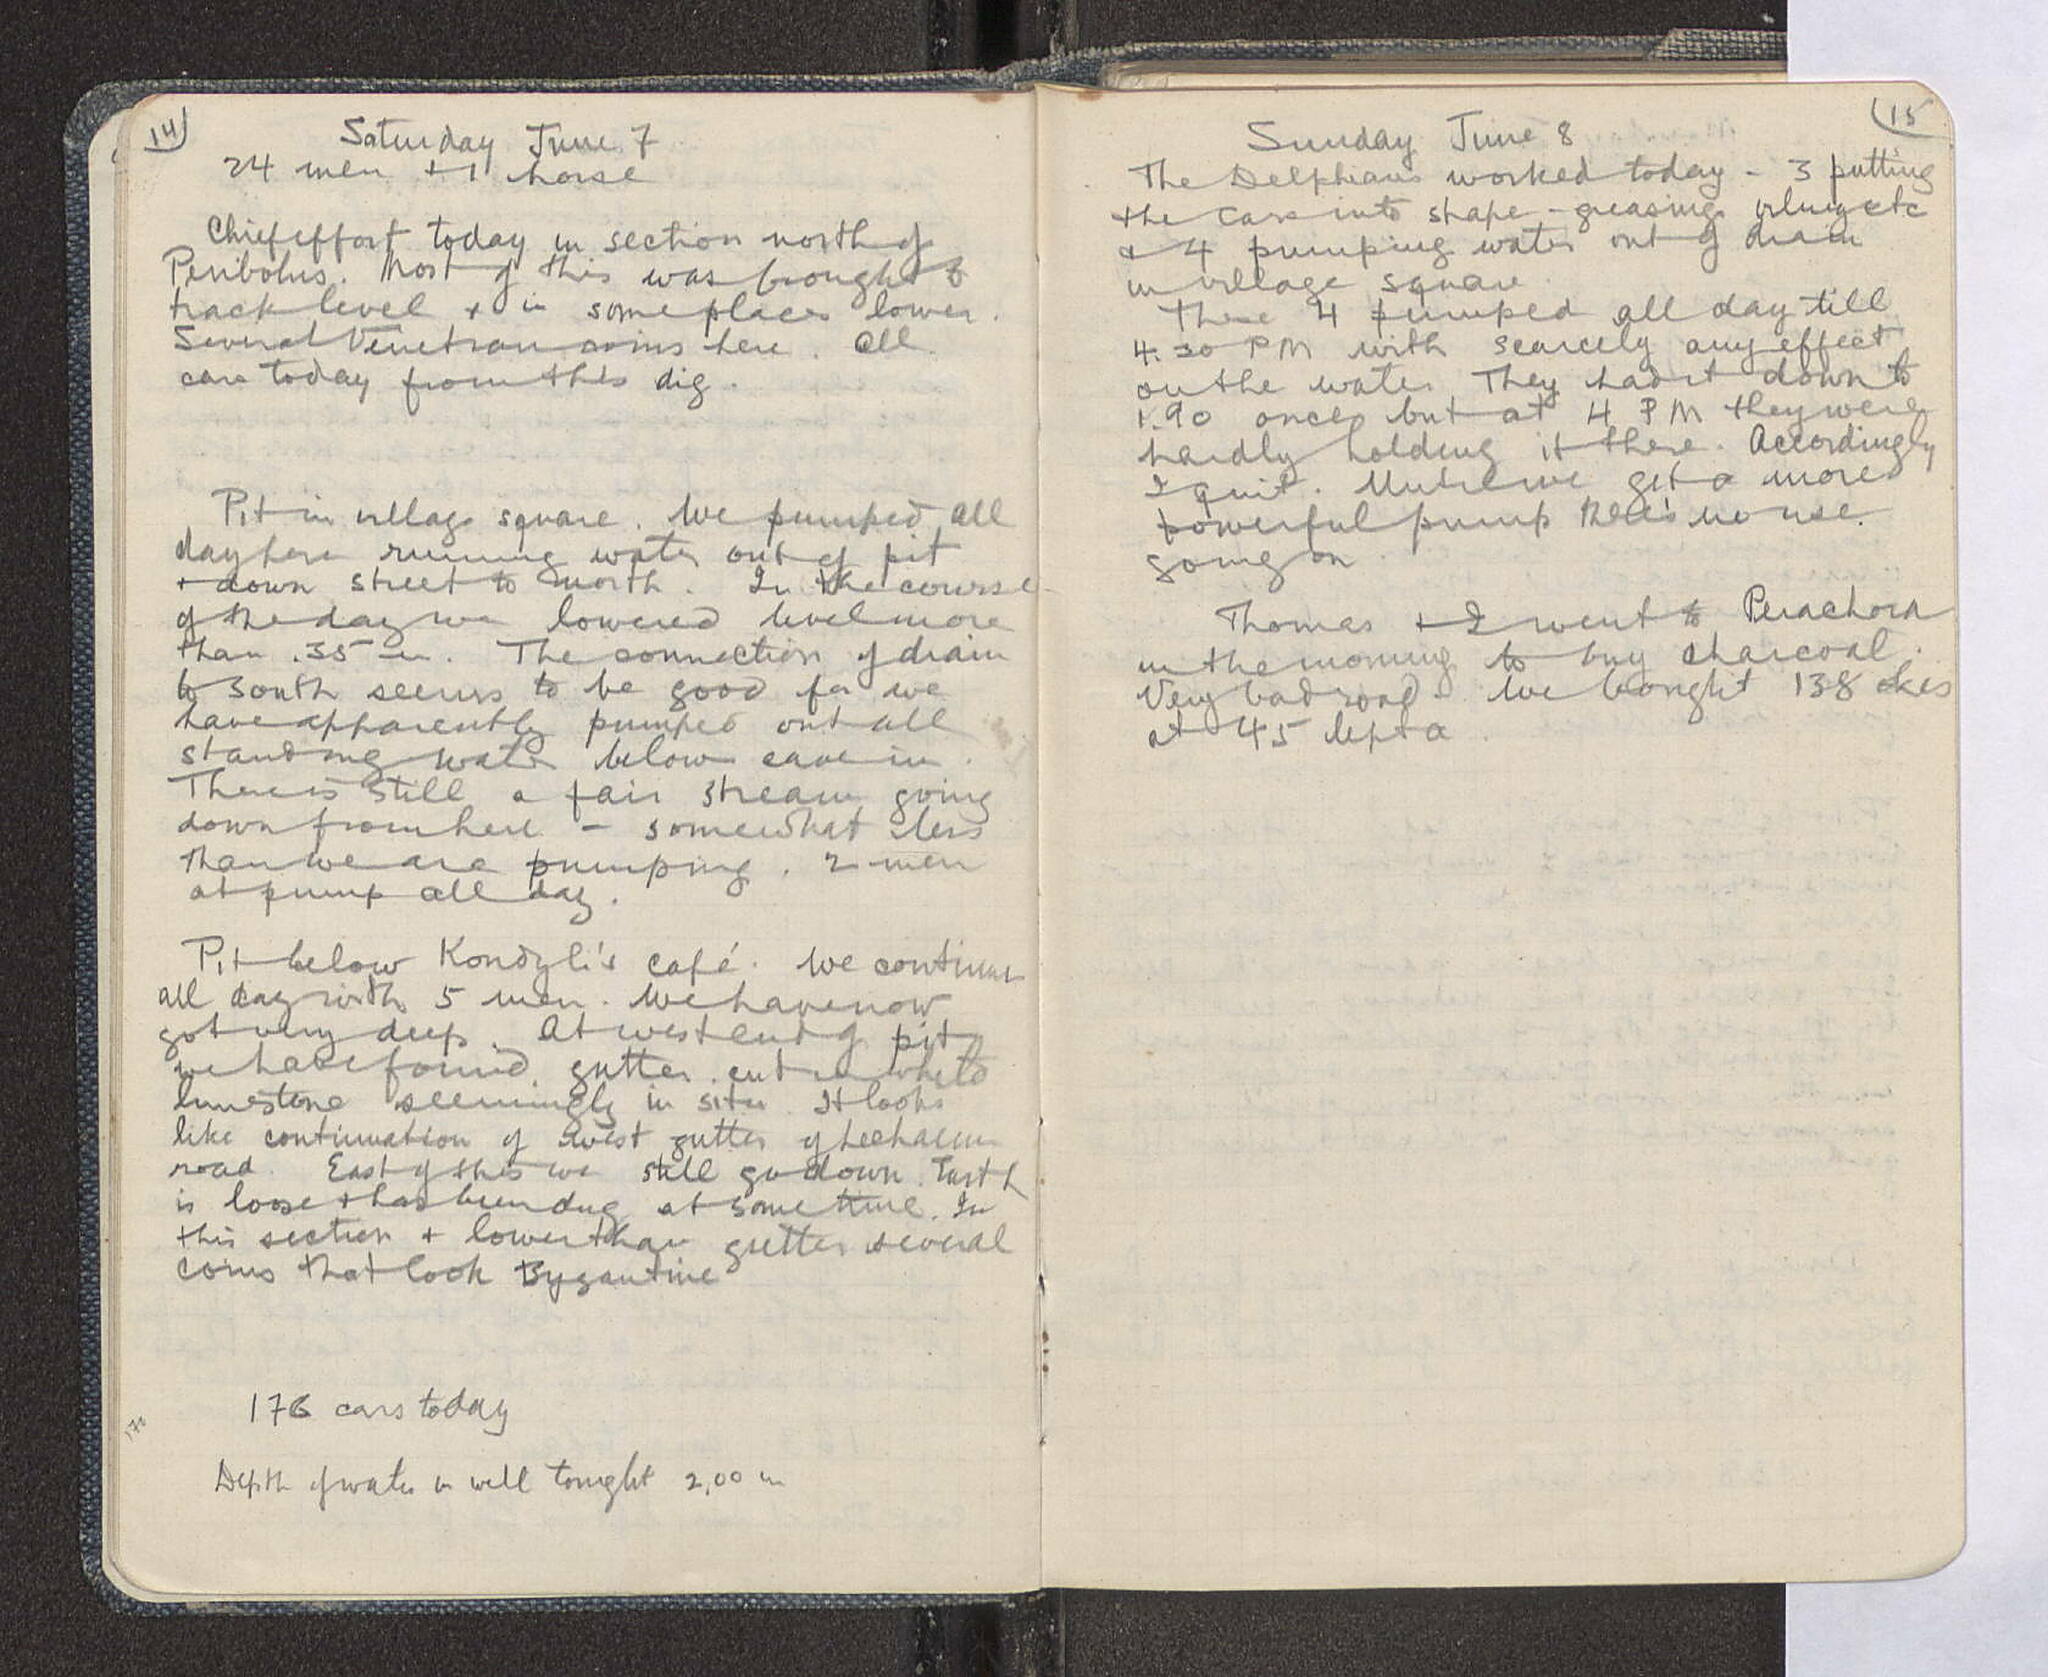 14
Saturday June 7
24 men + 1 horse
Chief effort today in section north of
Peribolus. Most of this was brought to
track level & in some places lower.
Several Venetian coins here. All
cars today from this dig.
Pit in village square. We pumped all
day here running water out of pit
+ down street to north. In the course
of the day we lowered level more
than .35 m. The connection of drain
to south seems to be good for we
have apparently pumped out all
standing water below cave in.
There is still a fair stream going
down from here - somewhat less
than we are pumping. 2 men
at pump all day.
Pit below Kondyli's café. We continue
all day with 5 men. We have now
got very deep. At west end of pit
we have found gutter cut in white
limestone seemingly in situ. It looks
like continuation of west gutter of Lechaeum
road. East of this we still go down. Earth
is loose + has been dug at some time. In
this section + lower than gutter several
coins that look Byzantine
176 cars today
176
Depth of water in well tonight 2,00 m
15
Sunday June 8
The Delphians worked today - 3 putting
the cars into shape - greasing etc
& 4 pumping water out of drain
in village square.
These 4 pumped all day till
4.30 PM with scarcely any effect
on the water. They had it down to
1.90 once but at 4 PM they were
hardly holding it there. Accordingly
I quit. Until we get a more
powerful pump there's no use
going on.
Thomas + I went to Perachora
in the morning to buy charcoal.
Very bad road. We bought 138 okes
at 45 lepta.